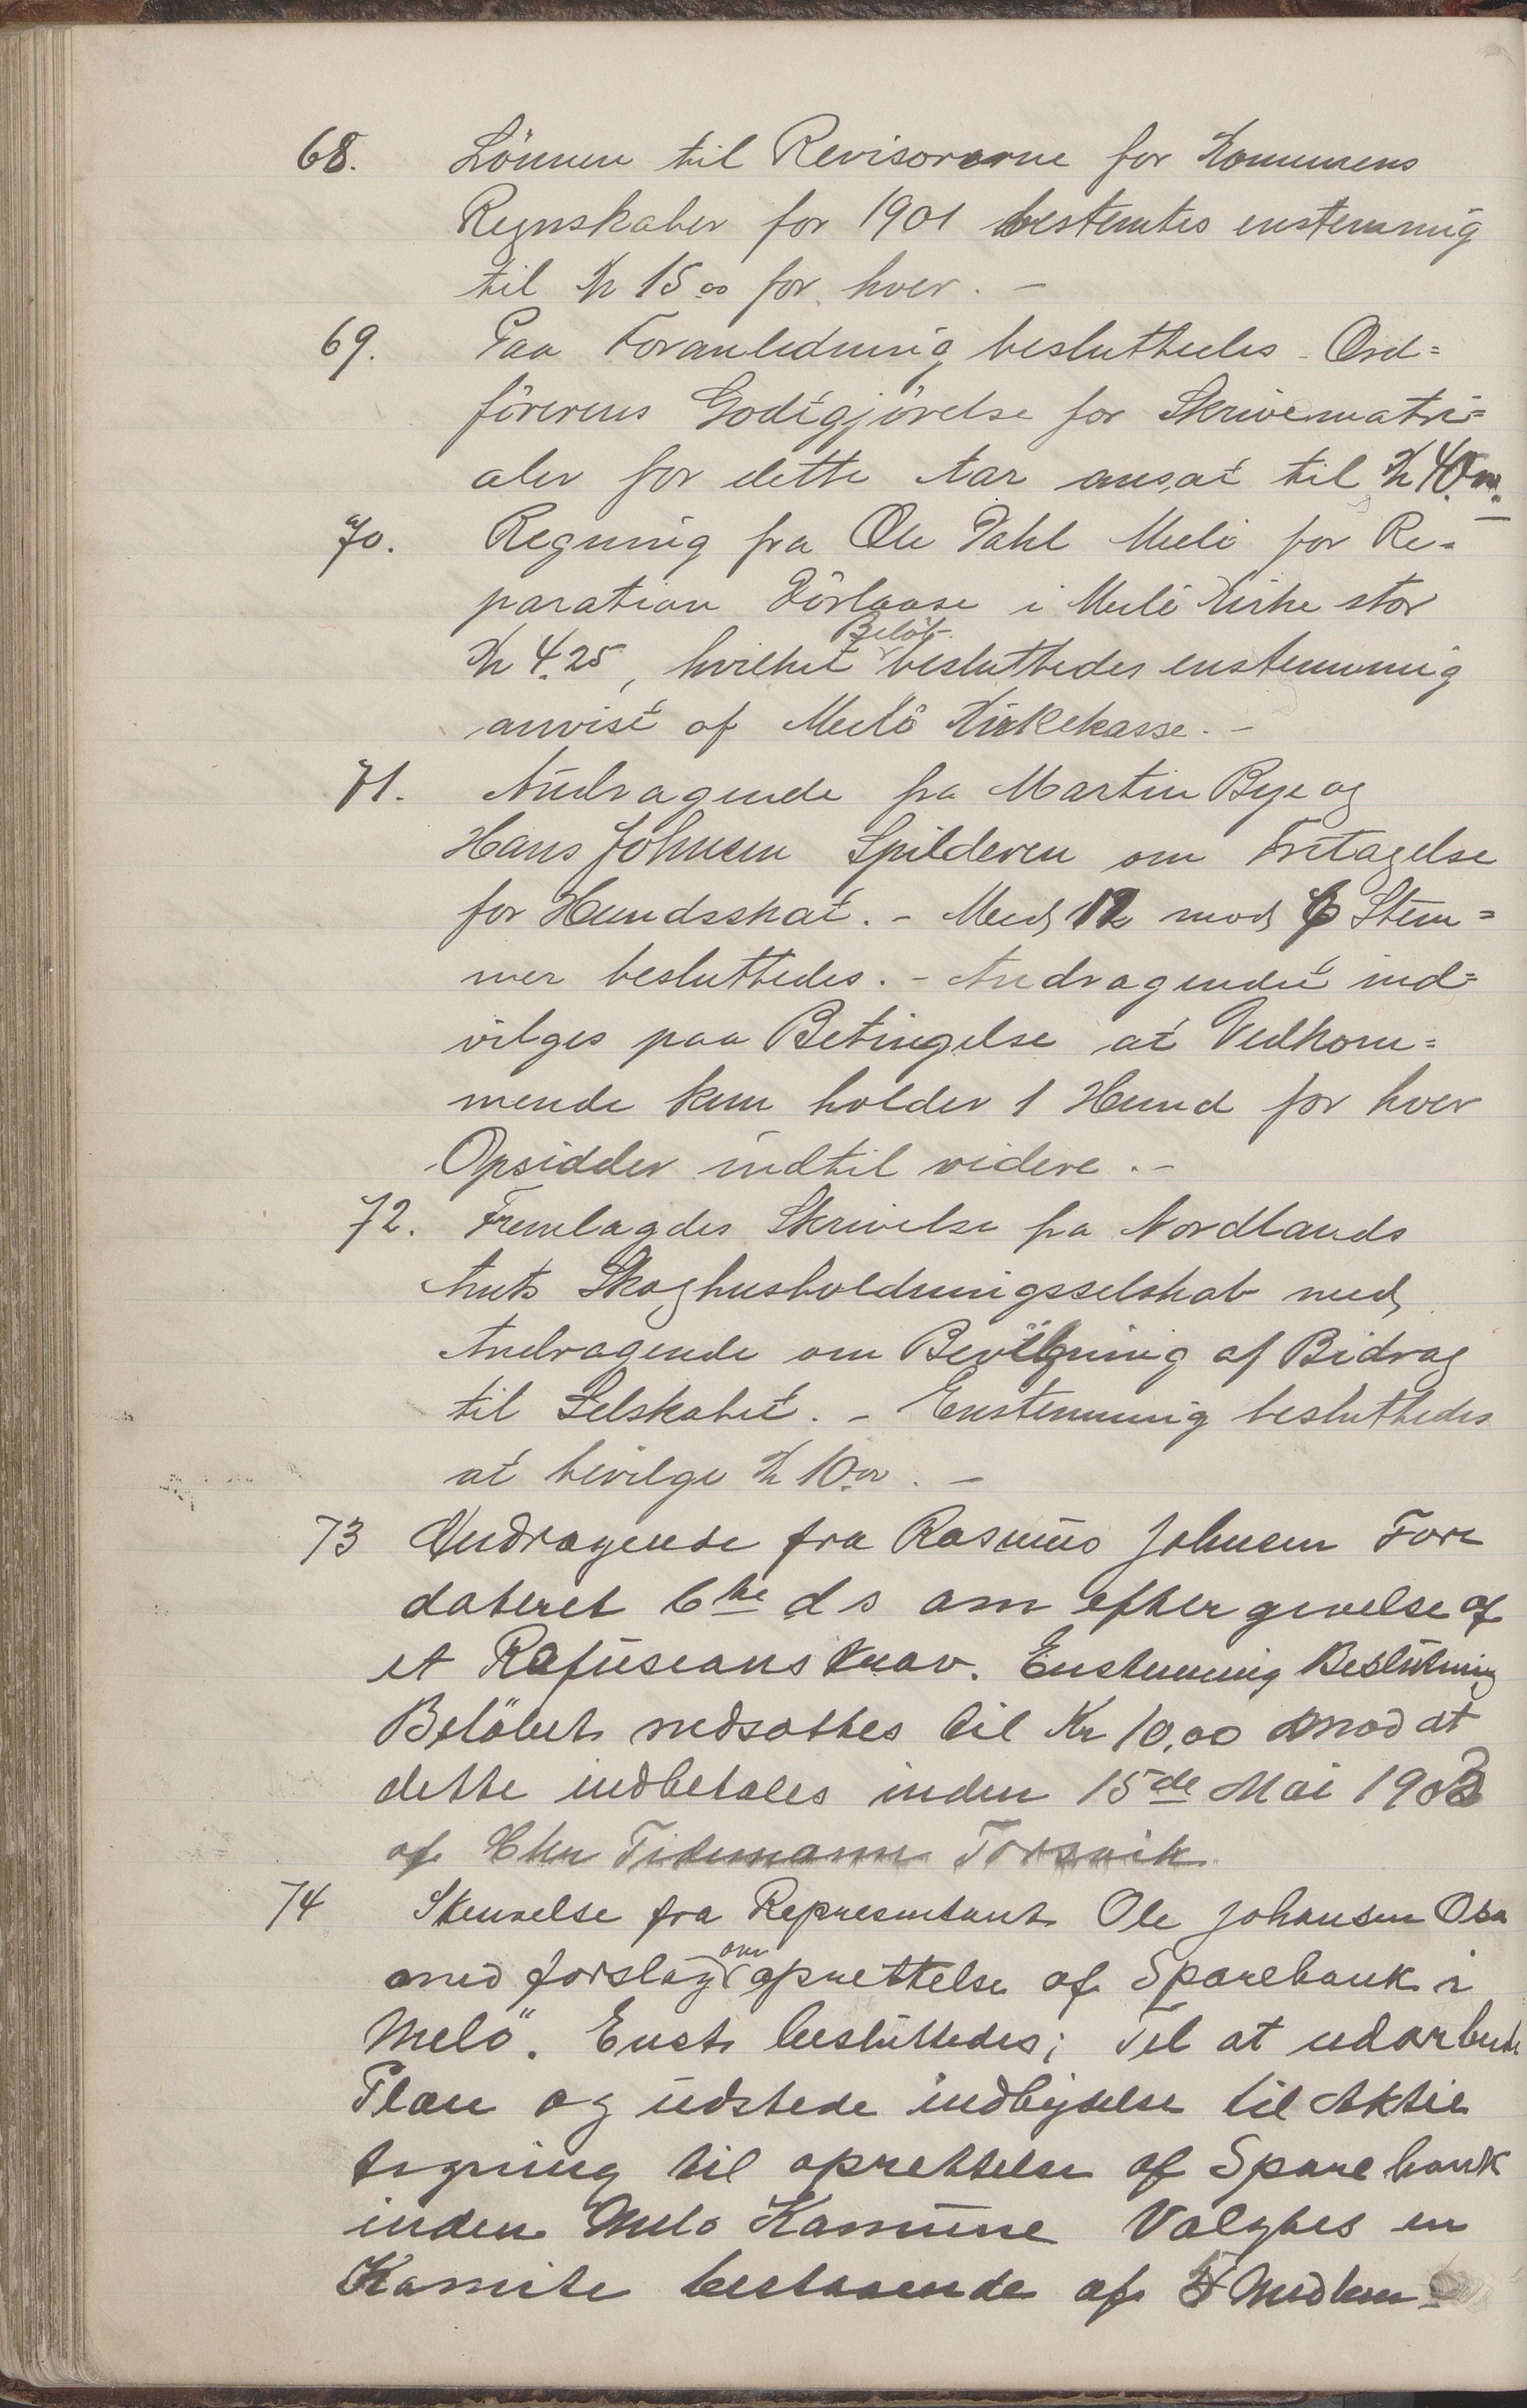 68. Lönnen til Revisorerne for Kommunens
Regnskaber for 1901 bestemtes enstemmig
til Kr 15.00 for hver. -
69. Paa Foranledning besluttedes Ord=
förerens Godtgjörelse for Skrivematri=
aler for dette Aar ansat til Kr 40.00. -
70. Regning fra Ole Dahl Melö for Re=
paration Dörlaase i Melö Kirke stor
Kr 4.25, hvilket Belöb besluttedes enstemmig
anvist af Melö Kirkekasse. -
71. Andragende fra Martin Bye og
Hans Johnsen Spilderen om Fritagelse
for Hundsskat. - Med 12 mod 6 Stem=
mer besluttedes. - Andragendet ind=
vilges paa Betingelse at Vedkom=
mende kun holder 1 Hund for hver
Opsidder indtil videre. -
72. Fremlagdes Skrivelse fra Nordlands
Amts Skoghusholdningsselskab med
Andragende om Bevilgning af Bidrag
til Selskabet. - Enstemmig besluttedes
at bevilge Kr 10.00. -
73 Andragende fra Rasmus Johnsen Fore
dateret 6te ds om eftergivelse af
et Refusions krav. Enstemmig Beslutning
Belöbet nedsattes til Kr 10,00 mod at
dette indbetales inden 15de Mai 1903
af Chr Tidemann Torsvik.
74 Skrivelse fra Representant Ole Johansen
med forslag om oprettelse af Sparebank i
Melö. Enst besluttedes; Til at udarbeide
Plan og udstede indbydelse til Aktie
tegning til oprettelse af Sparebank
inden Melö Komune Valgtes en
Komite bestaaende af 5 Medlem